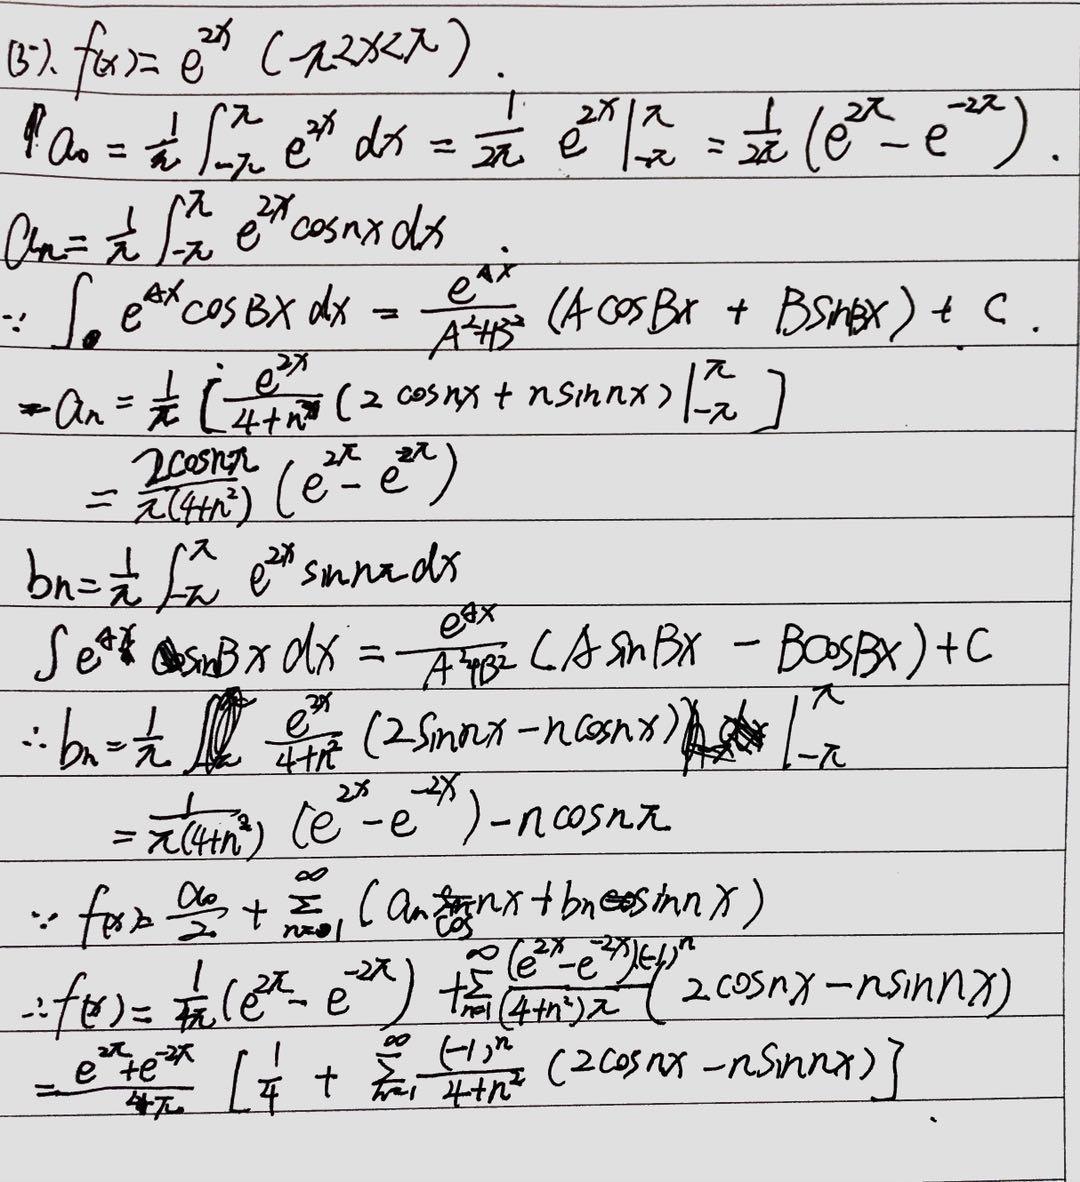 (5). f(x) = e^{2x} (-π<x<π).
a₀ = 1/π ∫_{-π}^{π} e^{2x} dx = 1/2π e^{2x} |_{-π}^{π} = 1/2π (e^{2π} - e^{-2π}).
aₙ = 1/π ∫_{-π}^{π} e^{2x} cosnx dx.
∵ ∫ e^{Ax} cosBx dx = e^{Ax}/(A²+B²) (A cosBx + BsinBx) + C.
aₙ = 1/π [e^{2x}/(4+n²) (2 cosnx + n sinnx) |_{-π}^{π}]
= 2cosnπ/π(4+n²) (e^{2π} - e^{-2π})
bₙ = 1/π ∫_{-π}^{π} e^{2x} sinnπ dx
∫ e^{Ax} sinBx dx = e^{Ax}/(A²+B²) (A sinBx - BcosBx) + C
∴ bₙ = 1/π e^{2x}/(4+n²) (2sinnx - n cosnx) |_{-π}^{π}
= 1/π(4+n²) (e^{2x} - e^{-2x}) - n cosnπ
∵ f(x) = a₀/2 + ∑_{n=1}^{∞} (aₙ cos nx + bₙ sinnx)
∴ f(x) = 1/4π (e^{2π} - e^{-2π}) + ∑_{n=1}^{∞} (e^{2x} - e^{-2x})(-1)ⁿ/(4+n²)π (2cosnx - nsinnx)
= (e^{2π} + e^{-2π})/π [1/4 + ∑_{n=1}^{∞} (-1)ⁿ/(4+n²) (2cosnx - nsinnx)]